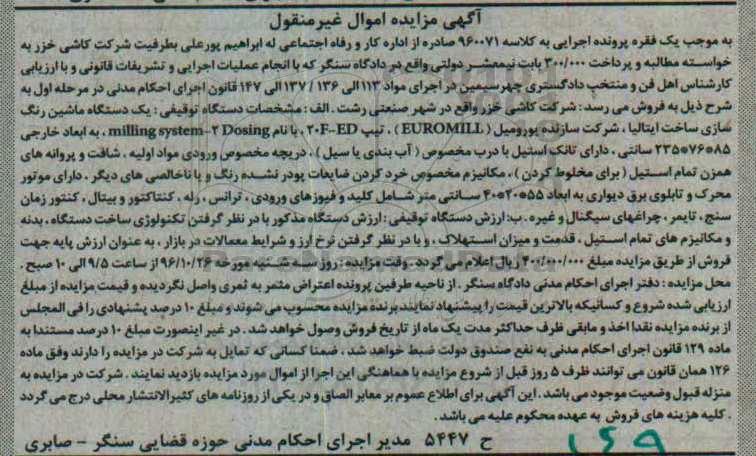 آگهی مزایده اموال غیرمنقول
به موجب یک فقره پرونده اجرایی به کلاسه ۹۶۰۰۷۱ صادره از اداره کار و رفاه اجتماعی له ابراهیم پورعلی بطرفیت شرکت کاشی خزر به
خواسته مطالبه و پرداخت ۳۰۰/۰۰۰ بابت نیمعشر دولتی واقع در دادگاه سنگر که با انجام عملیات اجرایی و تشریفات قانونی و با ارزیابی
کارشناس اهل فن و منتخب دادگستری چهرسیمین در اجرای مواد ۱۱۳ الی ۱۳۶ / ۱۳۷ الی ۱۴۷ قانون اجرای احکام مدنی در مرحله اول به
شرح ذیل به فروش می رسد : شرکت کاشی خزر واقع در شهر صنعتی رشت . الف : مشخصات دستگاه توقیفی : یک دستگاه ماشین رنگ
سازی ساخت ایتالیا ، شرکت سازنده یورومیل ( EUROMILL ) ، تیپ ۲۰F-ED ، با نام milling system-۲ Dosing ، به ابعاد خارجی
۸۵*۷۶*۲۳۵ سانتی ، دارای تانک استیل با درب مخصوص ( آب بندی یا سیل ) ، دریچه مخصوص ورودی مواد اولیه ، شافت و پروانه های
همزن تمام استیل ( برای مخلوط کردن ) ، مکانیزم مخصوص خرد کردن ضایعات پودر نشده رنگ و یا ناخالصی های دیگر ، دارای موتور
محرک و تابلوی برق دیواری به ابعاد ۵۵*۲۰*۴۰ سانتی متر شامل کلید و فیوزهای ورودی ، ترانس ، رله ، کنتاکتور و بیتال ، کنتور زمان
سنج ، تایمر ، چراغهای سیگنال و غیره . ب : ارزش دستگاه توقیفی : ارزش دستگاه مذکور با در نظر گرفتن تکنولوژی ساخت دستگاه ، بدنه
و مکانیزم های تمام استیل ، قدمت و میزان استهلاک ، و با در نظر گرفتن نرخ ارز و شرایط معاملات در بازار ، به عنوان ارزش پایه جهت
فروش از طریق مزایده مبلغ ۴۰۰/۰۰۰/۰۰۰ ریال اعلام می گردد . وقت مزایده : روز سه شنبه مورخه ۹۶/۱۰/۲۶ از ساعت ۹/۵ الی ۱۰ صبح .
محل مزایده : دفتر اجرای احکام مدنی دادگاه سنگر . از ناحیه طرفین پرونده اعتراض مثمر به ثمری واصل نگردیده و قیمت مزایده از مبلغ
ارزیابی شده شروع و کسانیکه بالاترین قیمت را پیشنهاد نمایند برنده مزایده محسوب می شوند و مبلغ ۱۰ درصد پشنهادی را فی المجلس
از برنده مزایده نقدا اخذ و مابقی ظرف حداکثر مدت یک ماه از تاریخ فروش وصول خواهد شد . در غیر اینصورت مبلغ ۱۰ درصد مستندا به
ماده ۱۲۹ قانون اجرای احکام مدنی به نفع صندوق دولت ضبط خواهد شد ، ضمنا کسانی که تمایل به شرکت در مزایده را دارند وفق ماده
۱۲۶ همان قانون می توانند ظرف ۵ روز قبل از شروع مزایده با هماهنگی این اجرا از اموال مورد مزایده بازدید نمایند . شرکت در مزایده به
منزله قبول وضعیت موجود می باشد . این آگهی برای اطلاع عموم بر معابر الصاق و در یکی از روزنامه های کثیرالانتشار محلی درج می گردد
. کلیه هزینه های فروش به عهده محکوم علیه می باشد .
ح ۵۴۴۷ مدیر اجرای احکام مدنی حوزه قضایی سنگر - صابری